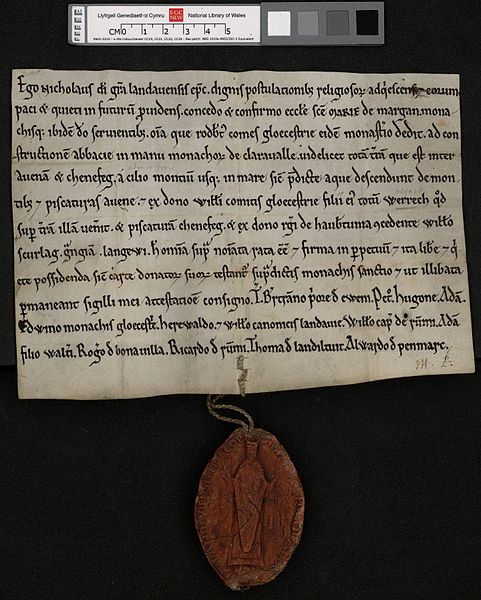 Llyfrgell Genedlaethol Cymru
National Library of Wales
CM 0 1 2 3 4 5
Ego Nicholaus di gra landauensis epc. dignis postulationib; religiosor adqiescens eorum
paci & quieti in futurum prudens. concedo & confirmo eccle sce MARIE de margan. mona
chisq; ibide do seruientib;. oma que rodbt' comes gloecestrie eide monastio dedit. ad con
structionem abbacie in manu monachor de claraualle. uidelicet tota tra que est inter
auena & chenefeg. a cilio montiu usq; in mare sic pdicte aque descendunt de mon
tib; & piscaturas auene. & ex dono willi comitis gloecestrie filii ei' totu werrech qd
sup tra illa uenit. & piscatura chenefeg. & ex dono rogi de haubtuma cedente willo
scurlag. gngia. langewi. homina sup noiata rata ee & firma in ppetuu & ita libe & q
ete possidenda sic carte donator suor testant'. supdictis monachis sanctio & ut illibata
pmaneant sigilli mei attestatioe consigno. T. Brgiano pore d ewem. Pet. hugone. Ada.
Edwino monachis gloecestr. herewaldo. & willo canonicis landaue. Willo cap d' runi. Ada
filio walti. Rogo d bonauilla. Ricardo d runi. Thoma d landiltuit. Alwardo d penmarc.